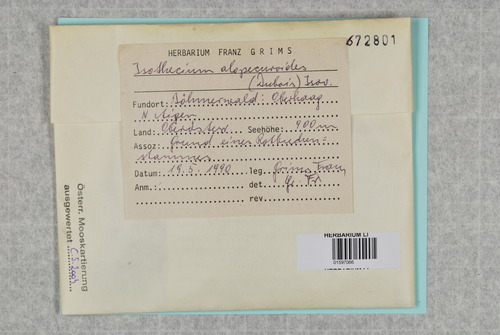 672801
HERBARIUM FRANZ GRIMS
Isothecium alopecuroides
(Dubois) Isov.
Fundort: Böhmerwald: Oberhaag
N Aigen
Land: Oberöst. Seehöhe: 900 m
Assoz: Grund eines Rotbuchen-
stammes
Datum: 19.5.1990 leg. Grims Franz
Anm.: det. Gr. Fr.
rev.
Österr. Mooskartierung
ausgewertet
HERBARIUM LI